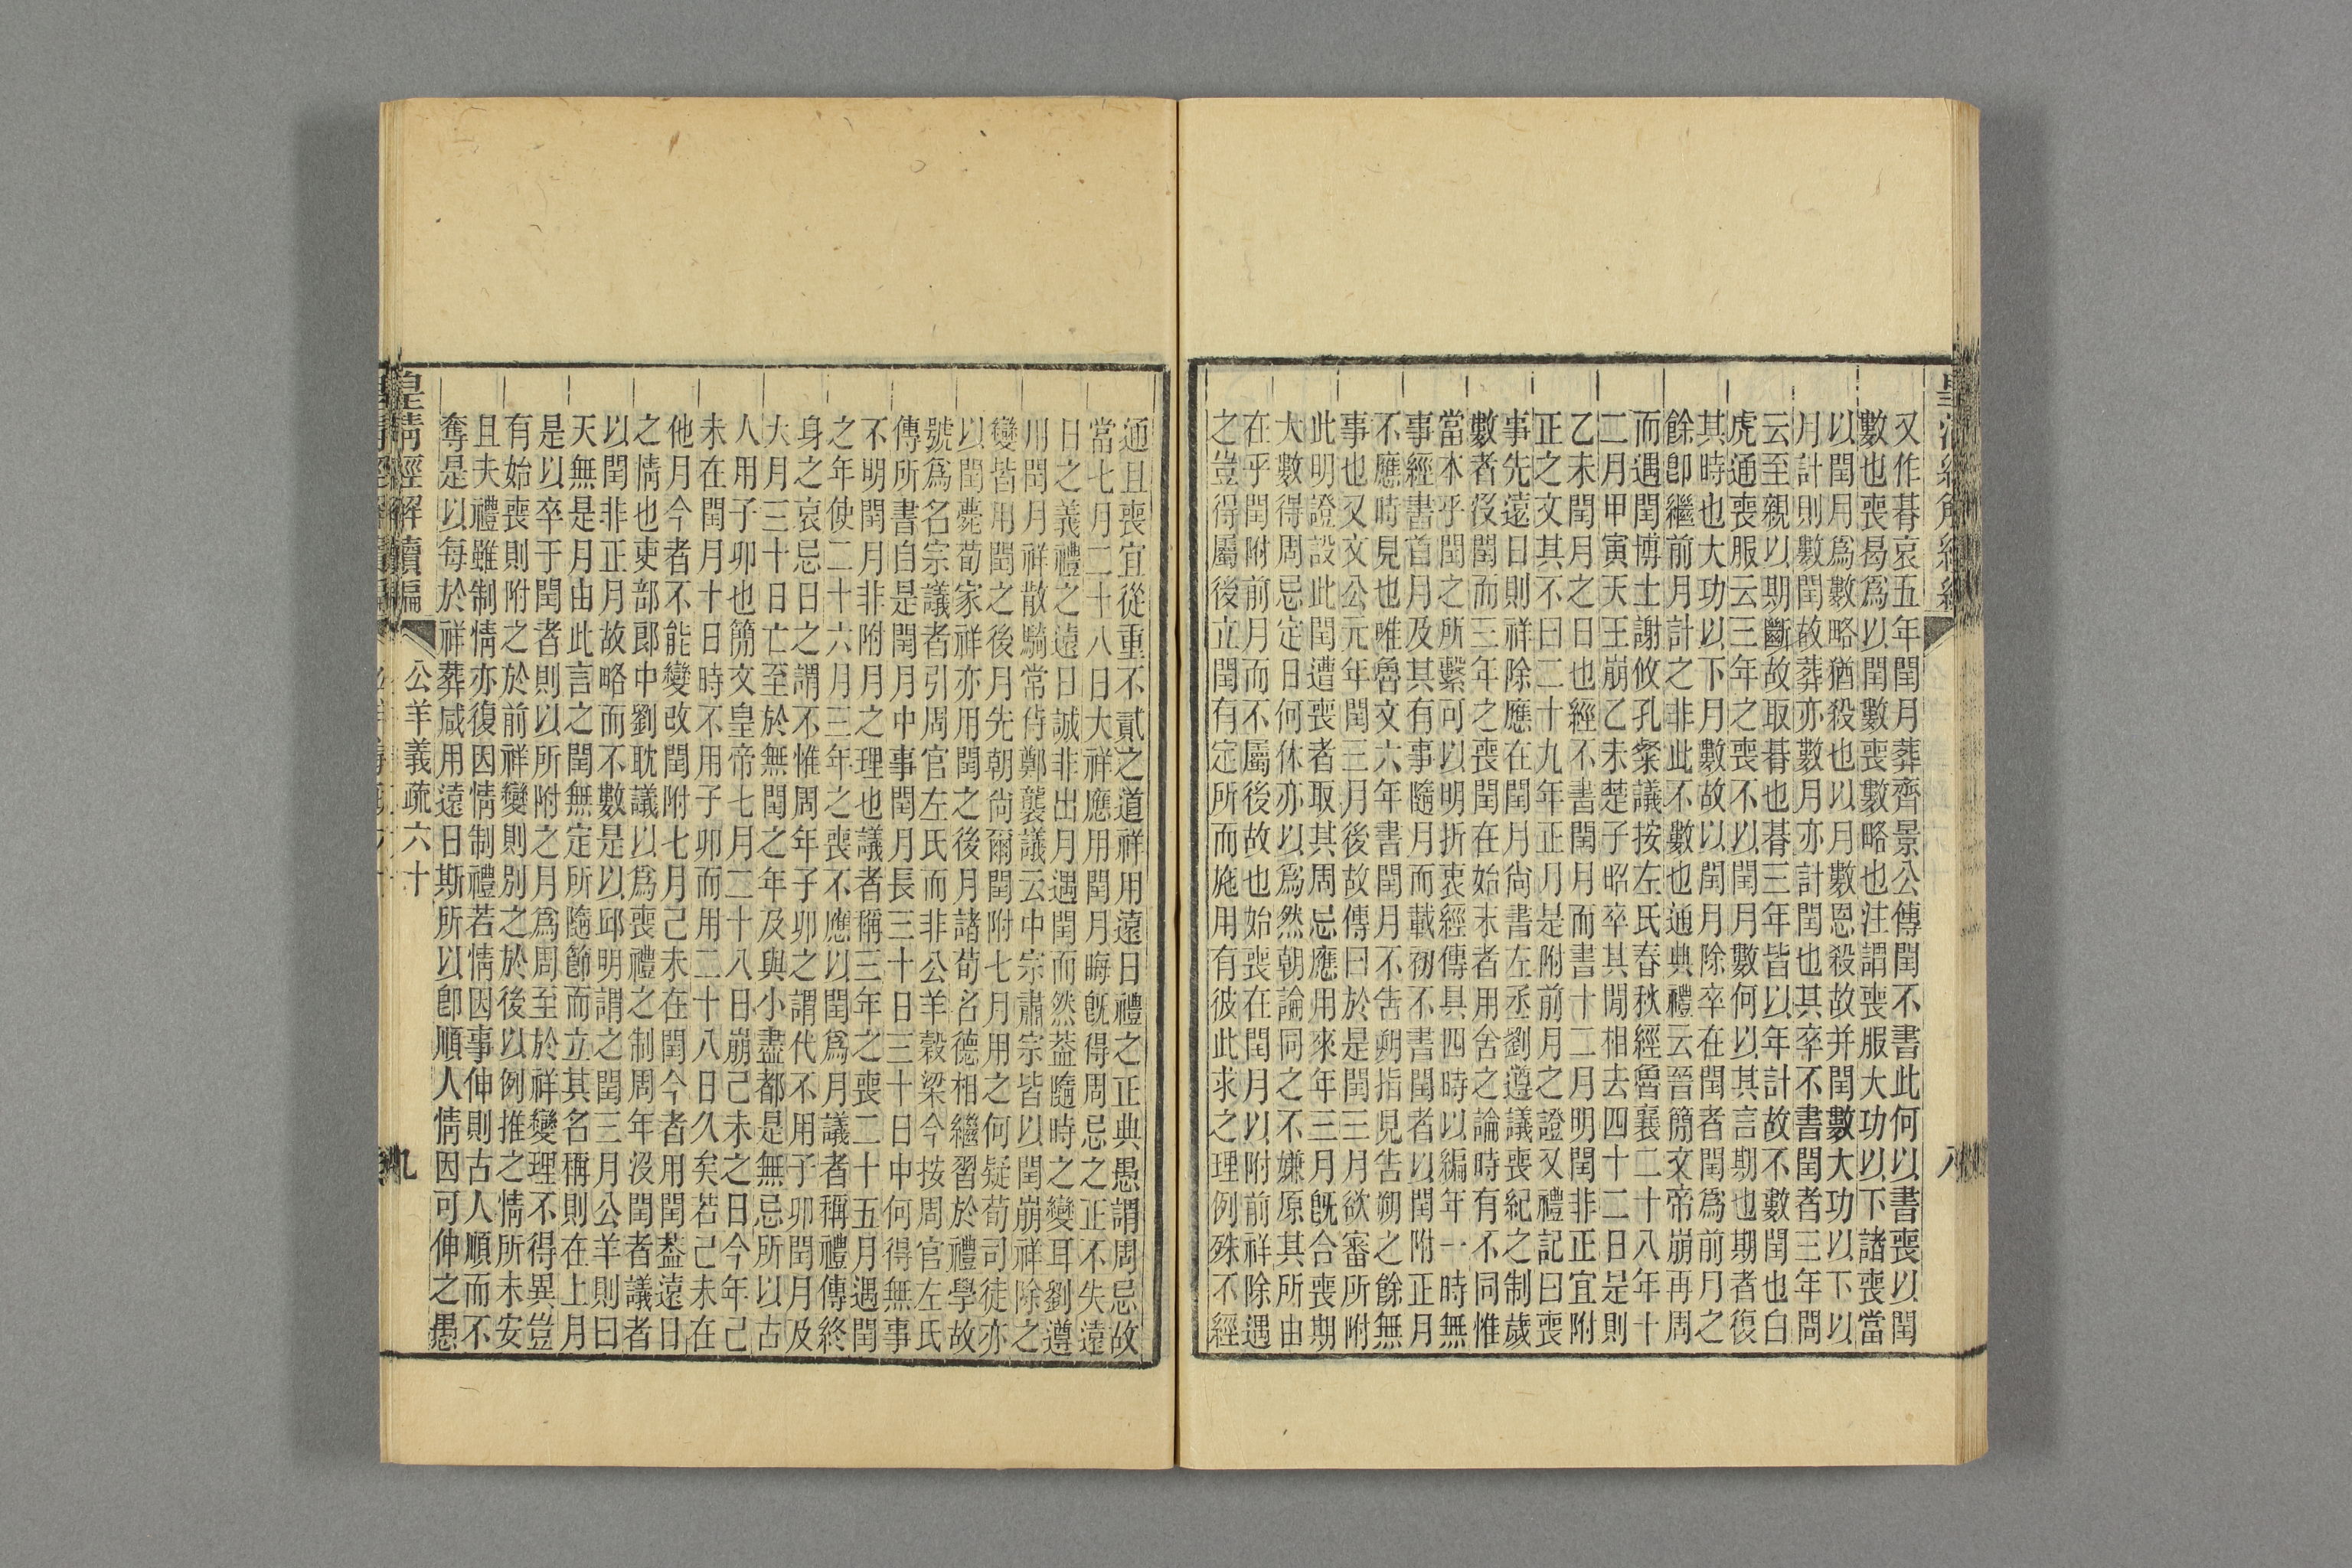 皇清經解續編
八
又作朞哀五年閏月葬齊景公傳閏不書此何以書喪以閏
數也喪曷爲以閏數喪數略也注謂喪服大功以下諸喪當
以閏月爲數略猶殺也以月數恩殺故并閏數大功以下以
月計則數閏故葬亦數月亦計閏也其卒不書閏者三年問
云至親以期斷故取朞也朞三年皆以年計故不數閏也白
虎通喪服云三年之喪不以閏月數何以其言期也期者復
其時也大功以下月數故以閏月除卒在閏者閏爲前月之
餘卽繼前月計之非此不數也通典禮云晉簡文帝崩再周
而遇閏博士謝攸孔粲議按左氏春秋經魯襄二十八年十
二月甲寅天王崩乙未楚子昭卒其閒相去四十二日是則
乙未閏月之日也經不書閏月而書十二月明閏非正宜附
正之文其不曰二十九年正月是附前月之證又禮記曰喪
事先遠日則祥除應在閏月尙書左丞劉遵議喪紀之制歲
數者沒閏而三年之喪閏在始末者用舍之論時有不同惟
當本乎閏之所繫可以明折衷經傳具四時以編年一時無
事經書首月及其有事隨月而載初不書閏者以閏附正月
不應時見也唯魯文六年書閏月不告朔指見告朔之餘無
事也又文公元年閏三月後故傳曰於是閏三月欲審所附
此明證設此閏遭喪者取其周忌應用來年三月旣合喪期
大數得周忌定日何休亦以爲然朝論同之不嫌原其所由
在乎閏附前月而不屬後故也始喪在閏月以附前祥除遇
之豈得屬後立閏有定所而施用有彼此求之理例殊不經
通且喪宜從重不貳之道祥用遠日禮之正典愚謂周忌故
當七月二十八日大祥應用閏月晦旣得周忌之正不失遠
日之義禮之遠日誠非出月遇閏而然葢隨時之變耳劉遵
用閏月祥散騎常侍鄭襲議云中宗肅宗皆以閏崩祥除之
變皆用閏之後月先朝尙爾閏附七月用之何疑荀司徒亦
以閏薨荀家祥亦用閏之後月諸荀名德相繼習於禮學故
號爲名宗議者引周官左氏而非公羊穀梁今按周官左氏
傳所書白是閏月中事閏月長三十日三十日中何得無事
不明閏月非附月之理也議者稱三年之喪二十五月遇閏
之年使二十六月三年之喪不應以閏爲月議者稱禮傳終
身之哀忌日之謂不惟周年子卯之謂代不用子卯閏月及
大月三十日亡至於無閏之年及與小盡都是無忌所以古
人用子卯也簡文皇帝七月二十八日崩己未之日今年己
未在閏月十日時不用子卯而用二十八日久矣若己未在
他月今者不能變改閏附七月己未在閏今者用閏葢遠日
之情也吏部郎中劉耽議以爲喪禮之制周年沒閏者議者
以閏非正月故略而不數是以邱明謂之閏三月公羊則曰
天無是月由此言之閏無定所隨節而立其名稱則在上月
是以卒于閏者則以所附之月爲周至於祥變理不得異豈
有始喪則附之於前祥變則別之於後以例推之情所未安
且夫禮雖制情亦復因情制禮若情因事伸則古人順而不
奪是以每於祥葬咸用遠日斯所以卽順人情因可伸之愚
皇清經解續編
公羊義疏六十
九